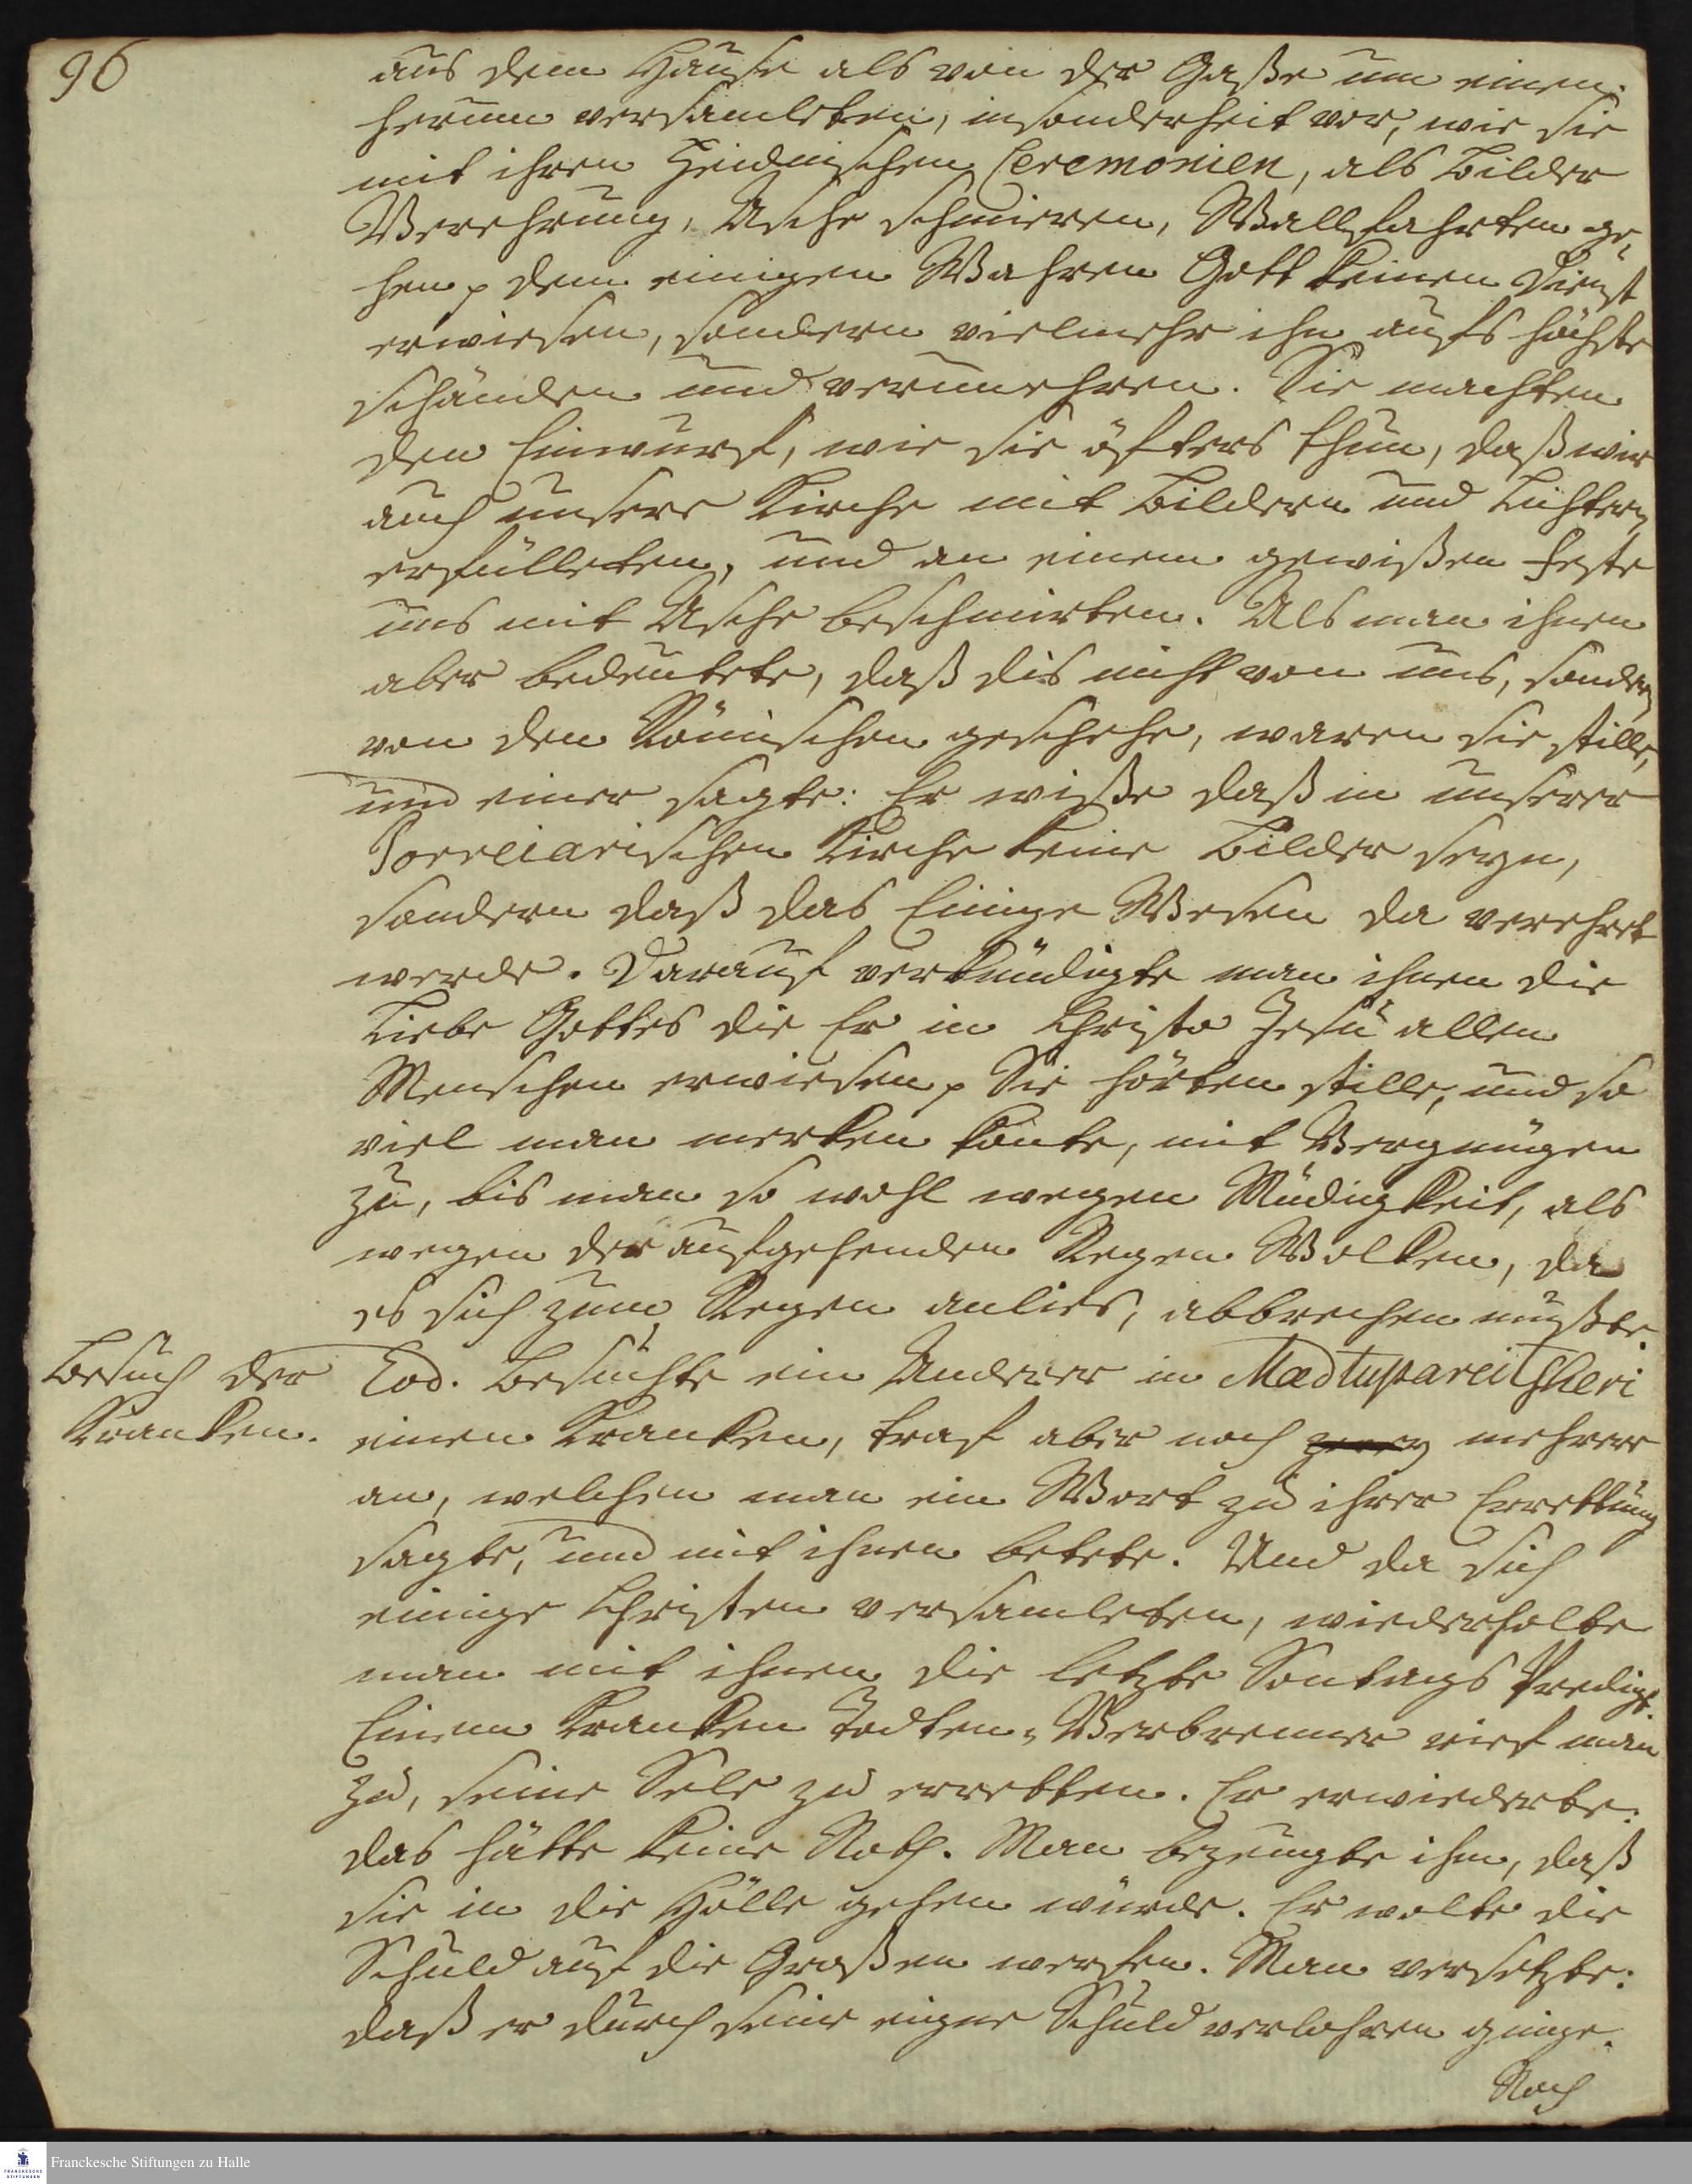 96
aus dem Hause als von der Gaße um einen
herum versamleten, insonderheit vor, wie sie
mit ihren Heidnischen Ceremonien, als Bilder
Verehrung, Asche schmieren, Wallfahrten ge-
hen p dem einigen Wahren Gott keinen Dienst
erwiesen, sondern vielmehr ihn aufs höchste
schänden und verunehren. Sie machten
den Einwurf, wie sie öfters thun, daß wir
auch unsere Kirche mit Bildern und Lichtern
erfülleten, und an einem gewißen Feste
uns mit Asche beschmirten. Als man ihnen
aber bedeutete, daß dis nicht von uns, sondern
von den Römischen geschehe, waren sie stille,
und einer sagte: Er wiße daß in unserer
Porreiarischen Kirche keine Bilder seyn,
sondern daß das Einige Wesen da verehret
werde. Darauf verkündigte man ihnen die
Liebe Gottes die Er in Christo Jesu allen
Menschen erwiesen p Sie hörten stille, und so
viel man merken konte, mit Vergnügen
zu, bis man so wohl wegen Müdigkeit, als
wegen der aufgehenden Regen Wolken, da
es sich zum Regen anlies, abbrechen mußte.
Besuch der
Kranken.
Eod. Besuchte ein Anderer in Madtupareitsheri
einen Kranken, traf aber noch mehrere
an, welchen man ein Wort zu ihrer Errettung
sagte, und mit ihnen betete. Und da sich
einige Christen versamleten, wiederholte
man mit ihnen die letzte Sontags Predigt.
Einem Kranken Todten-Verbrenner rief man
zu, seine Sele zu erretten. Er erwiederte:
das hätte keine Noth. Man bezeugte ihm, daß
sie in die Hölle gehen würde. Er wolte die
Schuld auf die Großen werfen. Man versetzte:
daß er durch seine eigne Schuld verlohren ginge.
Noch
Franckesche Stiftungen zu Halle